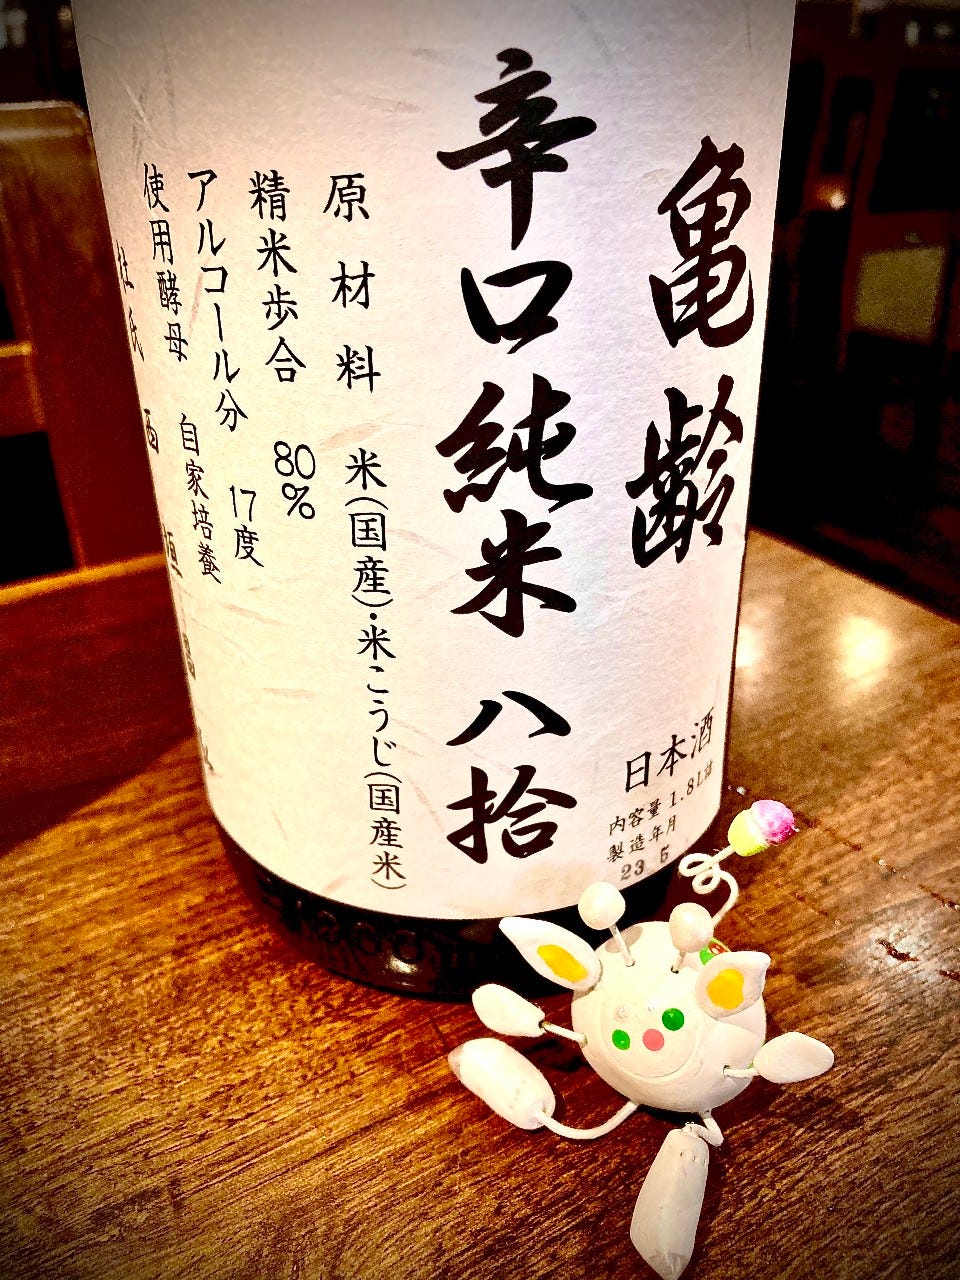 亀齢
辛口純米 八拾
原材料 米(国産)・米こうじ(国産米)
精米歩合 80%
アルコール分 17度
使用酵母 自家培養
杜氏 西垣
日本酒
内容量 1.8L詰
製造年月
23 5